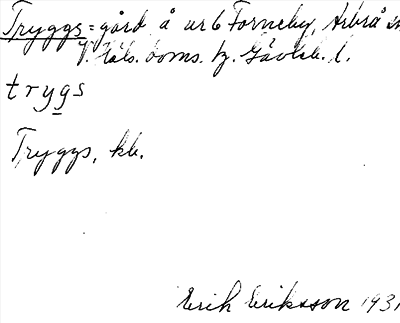 Tryggs = gård å nr 6 Forneby, Arbrå sn
V. Häls. doms. hg. Gävleb. l.
trygs
Tryggs, kb.
Erik Eriksson 1931